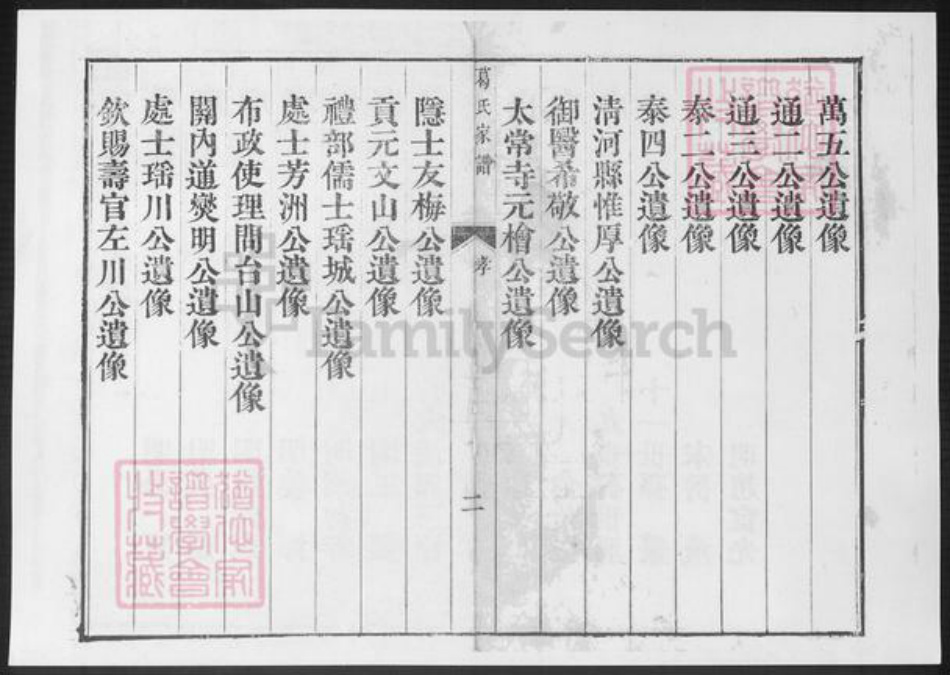 萬五公遺像
通二公遺像
通三公遺像
泰二公遺像
泰四公遺像
淸河縣惟厚公遺像
御醫希敬公遺像
太常寺元檜公遺像
葛氏家譜
孝
二
隱士友梅公遺像
貢元文山公遺像
禮部儒士瑶城公遺像
處士芳洲公遺像
布政使理問台山公遺像
關內道爕明公遺像
處士瑶川公遺像
欽賜壽官左川公遺像
FamilySearch